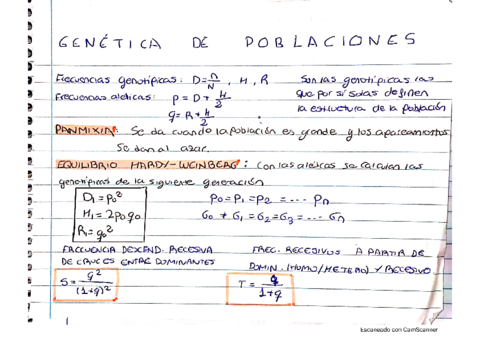 GENÉTICA DE POBLACIONES
Frecuencias genotípicas: D = n/N , H, R
Son las genotípicas las
que por sí solas definen
la estructura de la población
Frecuencias alélicas: p = D + H/2
q = R + H/2
PANMIXIA: Se da cuando la población es grande y los apareamientos
se dan al azar.
EQUILIBRIO HARDY-WEINBERG: Con las alélicas se calculan las
genotípicas de la siguiente generación
D₁ = p₀²
H₁ = 2p₀q₀
R₁ = q₀²
p₀ = p₁ = p₂ = .... pₙ
G₀ ≠ G₁ = G₂ = G₃ = .... Gₙ
FRECUENCIA DESCEND. RECESIVA
DE CRUCES ENTRE DOMINANTES
S = q²/(1+q)²
FREC. RECESIVOS A PARTIR DE
DOMIN. (HOMO/HETERO) Y RECESIVO
T = q/1+q
Escaneado con CamScanner